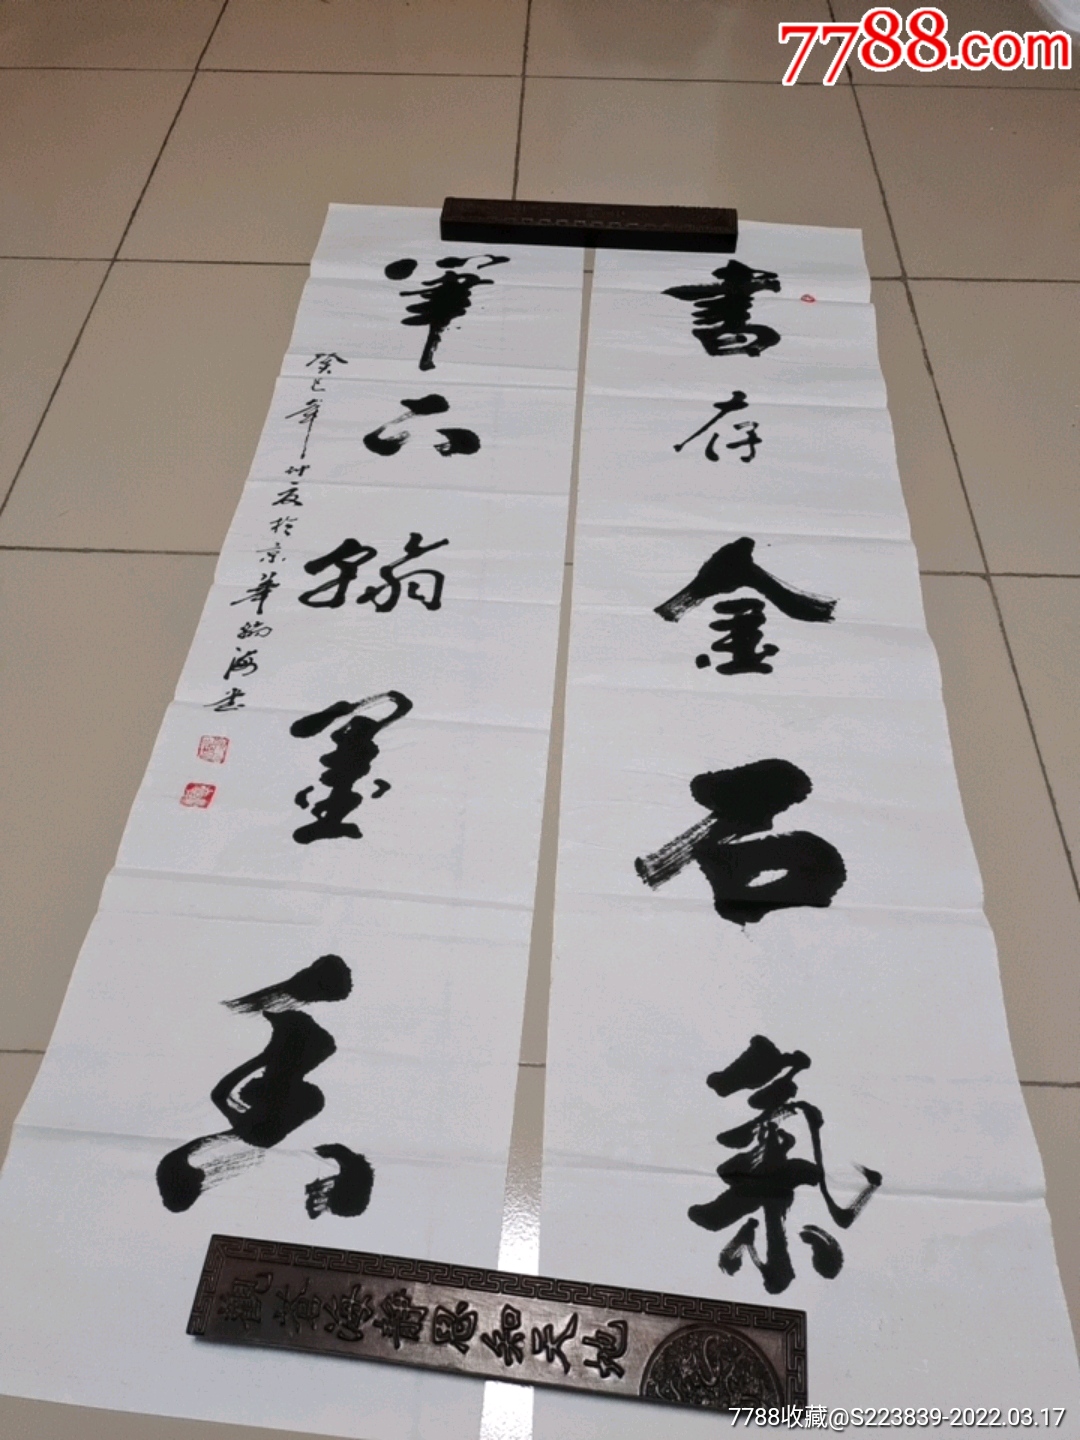 7788.com
書存金石氣
筆下翰墨香
癸巳年仲夏於京華翰海書
觀蒼海靜思知天地
7788收藏@S223839-2022.03.17